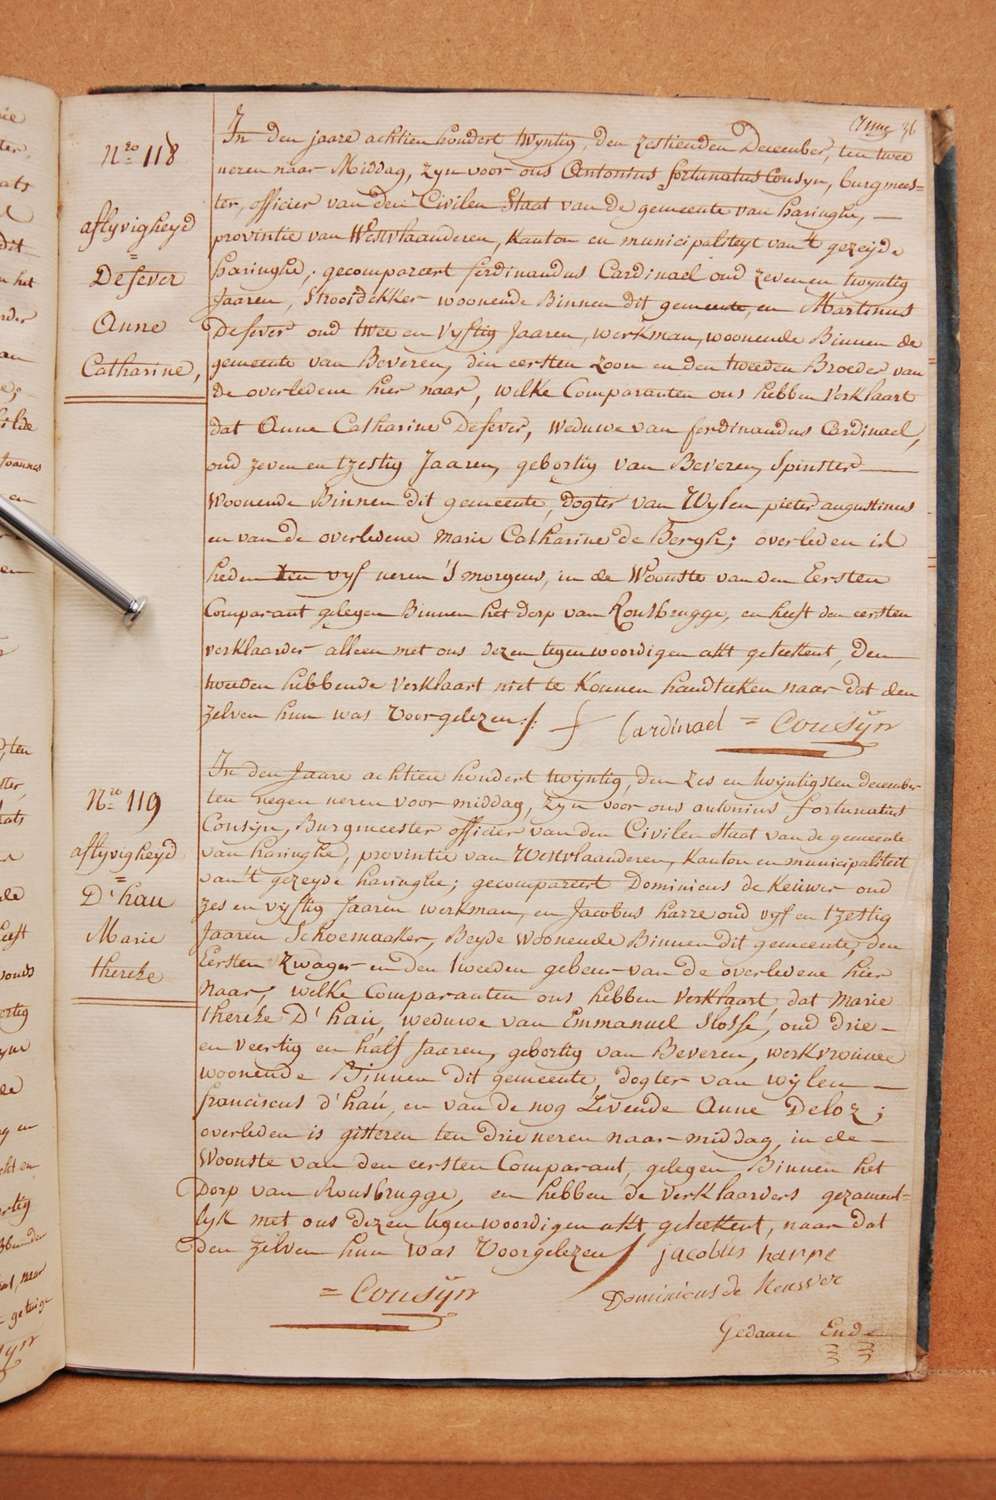 36
Nro 118
aflyvigheyd
Desever
Anne
Catharine,
In den jaare achtien hondert twyntig, den zestienden December, ten twee
ueren naar Middag, zyn voor ons Antonius fortunatus Cousyn, burgmees-
ter, officier van den Civilen Staat van de gemeente van haringhe,
provintie van Westvlaanderen, Kanton en municipaliteyt van't gezeyde
haringhe, gecompareert ferdinandus Cardinael oud zeven en twyntig
Jaaren, Strooidekker woonende Binnen dit gemeente, en Martinus
Desever oud twee en vyftig Jaaren, werkman, woonende Binnen de
gemeente van Beveren, den eersten zoon en den tweeden Broeder van
de overledene hier naar, welke Comparanten ons hebben Verklaart
dat Anne Catharine Desever, weduwe van ferdinandus Cardinael,
oud zeven en tzestig Jaaren, gebortig van Beveren, Spinster
Woonende Binnen dit gemeente, Dogter van Wylen pieter augustinus
en van de overledene Marie Catharine de Berghe; overleden is
heden ten vyf ueren 's morgens, in de Woonste van den Eersten
Comparant gelegen Binnen het dorp van Rousbrugge, en heeft den eersten
verklaarder alleen met ons dezen tegenwoordigen akt geteekent, Den
tweeden hebbende Verklaart niet te Konnen handteeken naar dat den
zelven hun was Voorgelezen
Cardinael = Cousÿn
Nro 119
aflyvigheyd
D'hau
Marie
thereze
In den Jaare achtien hondert twÿntig, den zes en twÿntigsten december
ten negen ueren voor middag, zyn voor ons antonius fortunatus
Cousÿn, Burgmeester officier van den Civilen Staat van de gemeente
van haringhe, provintie van Westvlaanderen, Kanton en municipaliteit
van't gezeyde haringhe; gecompareert Dominicus de Keuwer oud
zes en vyftig Jaaren werkman, en Jacobus harre oud vyf en tzestig
Jaaren Schoemaaker, Beyde Woonende Binnen dit gemeente, den
Eersten Zwager en den tweeden gebeur van de overledene hier
Naar, welke Comparanten ons hebben Verklaart dat Marie
thereze D'hau, weduwe van Emmanuel Slosse, oud drie
en veertig en half Jaaren, gebortig van Beveren, werkvrouwe
woonende Binnen dit gemeente, Dogter van wylen
franciscus d'hau, en van de nog Levende Anne Deloz;
overleden is gisteren ten drie ueren naar-middag, in de
Woonste van den eersten Comparant, gelegen Binnen het
Dorp van Rousbrugge, en hebben de verklaarders gezament-
lyk met ons dezen tegenwoordigen akt geteekent, naar dat
den zelven hun was Voorgelezen jacobus harre
= Cousÿn Dominicus de Keuwer
Gedaan Ende